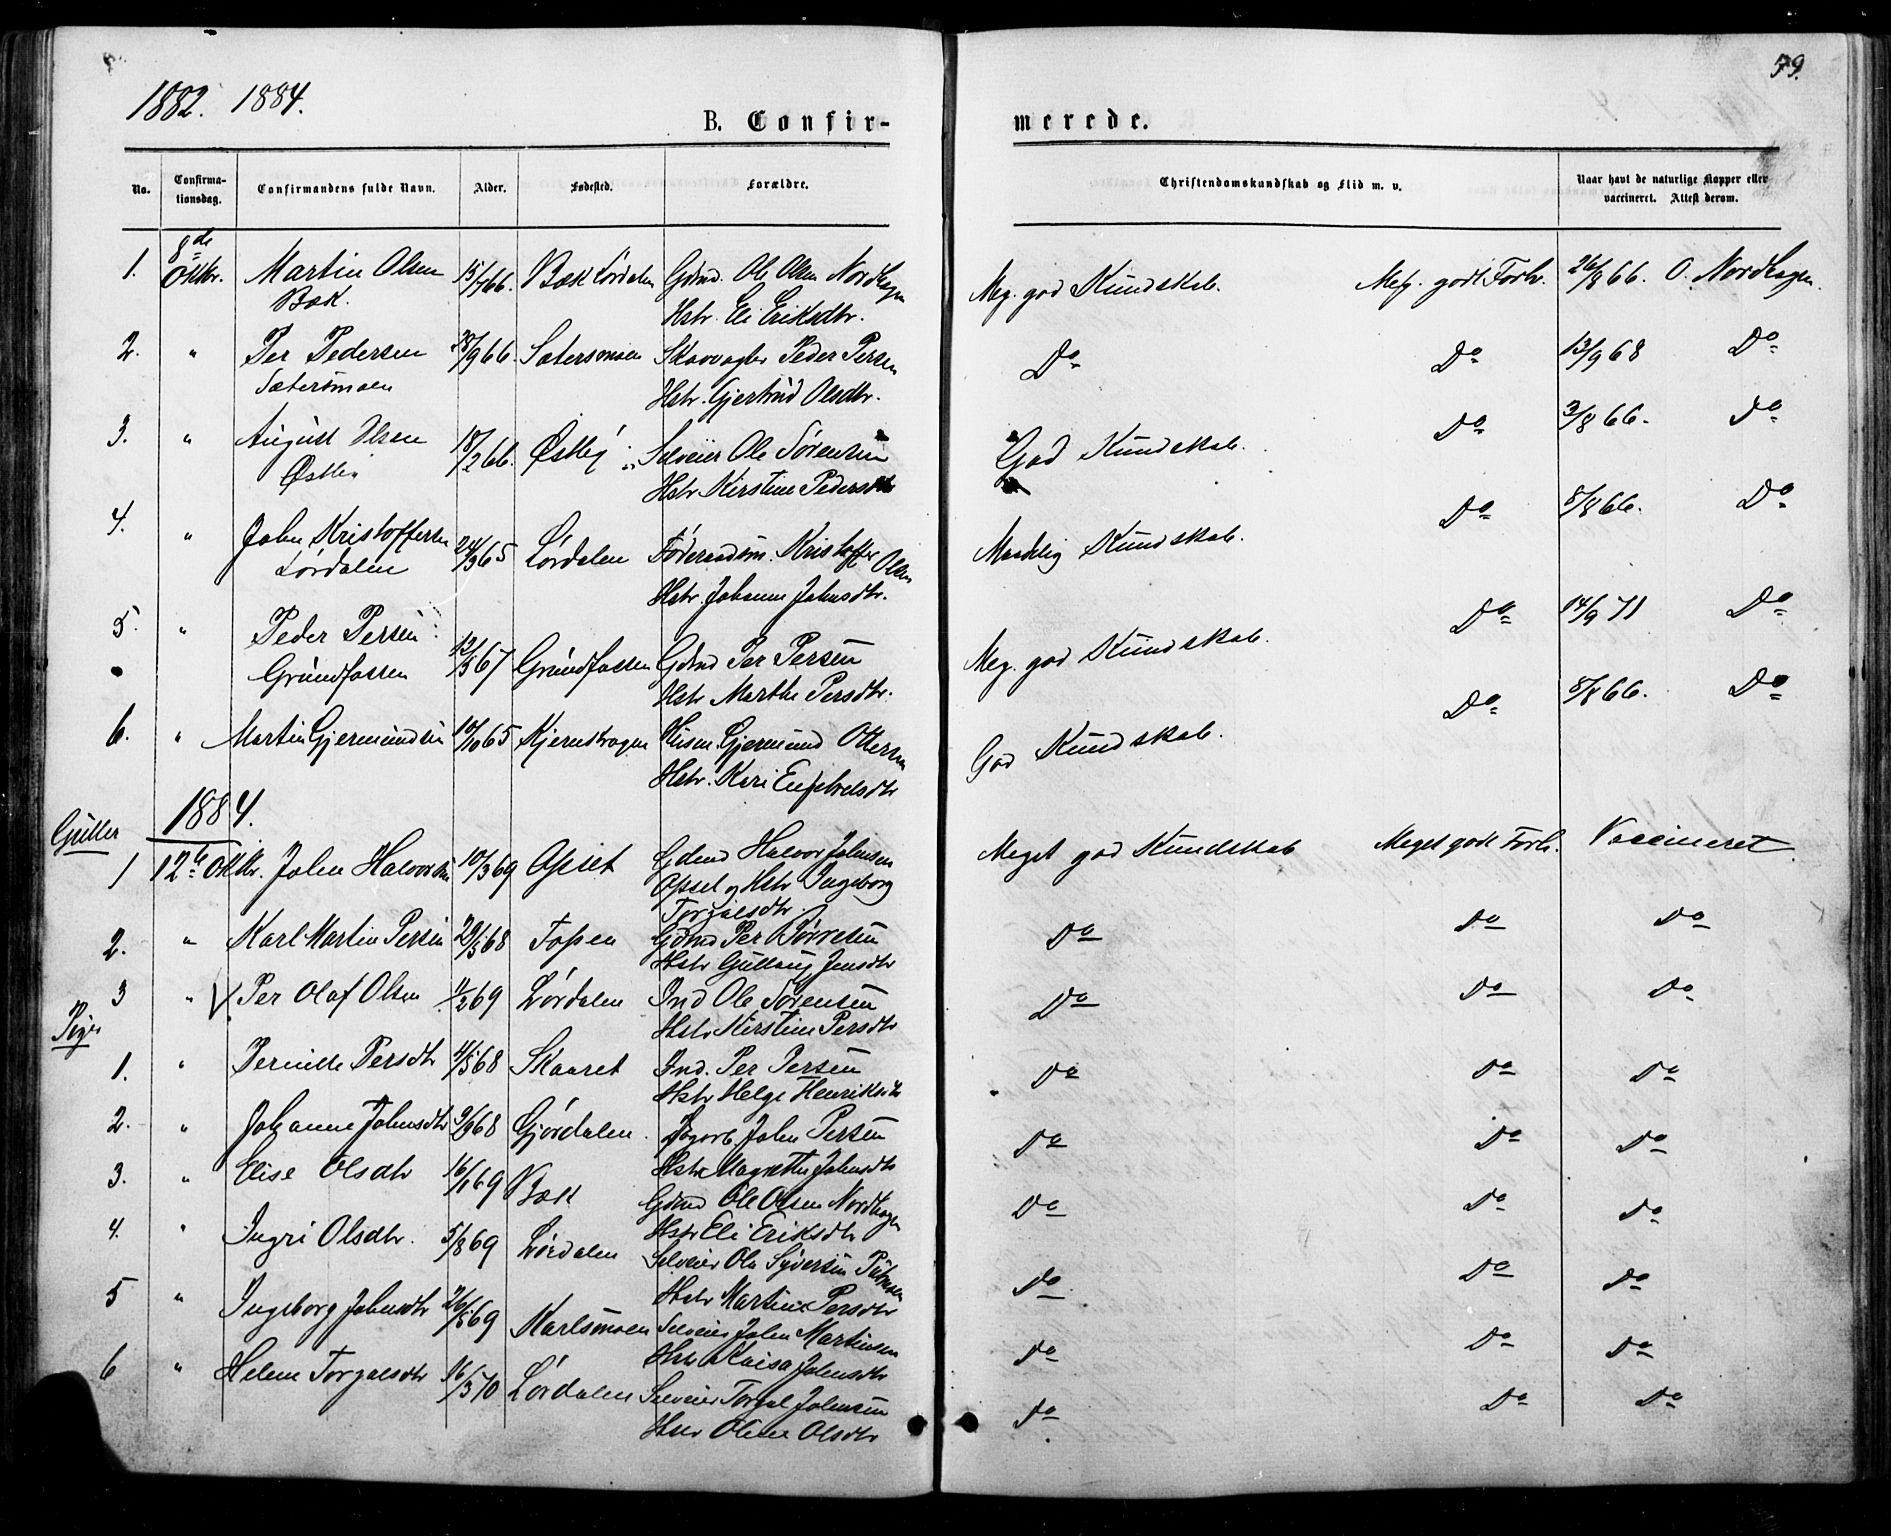 1882. 1884.
79.
B. Confir-
merede.
No.
Confirma-
tionsdag.
Confirmandens fulde Navn.
Alder.
Fødested.
Forældre.
Christendomskundskab og Flid m. v.
Naar havt de naturlige Kopper eller
vaccineret. Attest derom.
1. 8de Oktbr. Martin Olsen 15/7 66. Bæk Lørdalen Gdmd. Ole Olsen Nordhagen Meg. god Kundskab. Meg. godt Forh. 26/8 66. O. Nordhagen.
Bæk. Hstr. Eli Eriksdtr.
2. " Per Pedersen 28/9 66. Sætersmoen Skovvogter Peder Persen Do Do 13/9 68 Do
Sætersmoen Hstr. Gjertrud Olsdtr.
3. " August Olsen 18/2 66. Østby Selveier Ole Sørensen God Kundskab. Do 3/8 66. Do
Østby Hstr Kirstine Pedersdtr
4. " John Kristoffersen 24/9 65 Lørdalen Føderaadsm. Kristoffer Olsen Maadelig Kundskab. Do 8/8 66. Do
Lørdalen Hstr. Johanne Johnsdtr.
5. " Peder Persen 12/5 67 Grundfossen Gdmd Per Persen Meg. god Kundskab. Do 14/9 71 Do
Grundfossen Hstr Marthe Persdtr.
6. " Martin Gjermundsen 10/10 65 Kjernsbragen Husm. Gjermund Ottersen God Kundskab. Do 8/8 66. Do
Hstr. Kari Engebretsdtr
1884.
Gutter
1 12te Oktbr. John Halvorsen 10/3 69 Opset Gdmd Halvor Johnsen Meget god Kundskab Meget godt Forh. Vaccineret.
Opset og Hstr Ingeborg
Torgalsdtr.
2. " Karl Martin Persen 29/5 68 Fossen Gdmd Per Børresen Do Do Do
Hstr Gullaug Jensdtr
3 " V Per Olaf Olsen 1/2 69 Lørdalen Ind Ole Sørensen Do Do Do
Hstr Kirstine Persdtr
Piger
1. " Pernille Persdtr 4/5 68 Skaaret Ind. Per Persen Do Do Do
Hstr Helge Henriksdtr
2. " Johanne Johnsdtr 9/9 68 Gjørdalen. John Persen Do Do Do
Hstr Magrethe Johnsdtr
3. " Elise Olsdtr 16/1 69 Bæk Gdmd Ole Olsen Nordhagen Do Do Do
Hstr Eli Eriksdtr
4. " Ingri Olsdtr. 5/8 69 Lørdalen Selveier Ole Syversen Do Do Do
Hstr Martine Persdtr
5 " Ingeborg Johnsdtr 26/5 69 Karlsmoen Selveier John Martinsen Do Do Do
Hstr Kaisa Johnsdtr
6 " Helene Torgalsdtr 16/3 70 Lørdalen Selveier Torgal Johnsen Do Do Do
Hstr Oline Olsdtr